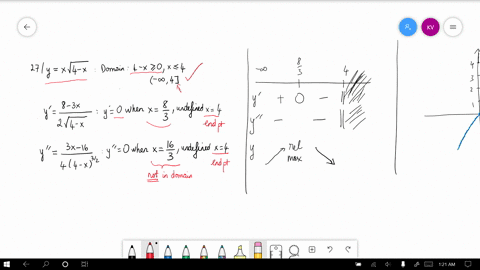 27/ y = x√(4-x) : Domain: 4-x ≥ 0, x ≤ 4
(-∞, 4]
y' = (8-3x)/(2√(4-x)) : y' = 0 when x = 8/3, undefined x = 4
end pt
y'' = (3x-16)/(4(4-x)^(3/2)) : y'' = 0 when x = 16/3, undefined x = 4
end pt
not in domain
-∞ 8/3 4
y' + 0 -
y'' - -
y rel
max
4
3
2
1
KV
1:21 AM